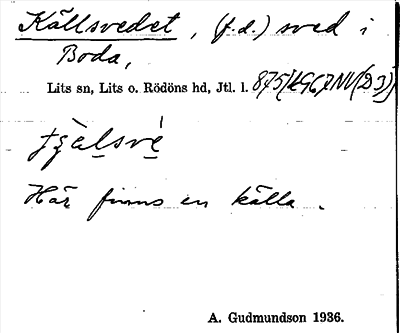 Källsvedet, (f.d.) sved i
Boda,
Lits sn, Lits o. Rödöns hd, Jtl. l. 875 (kG67NV(D3))
Här finns en källa.
A. Gudmundson 1936.